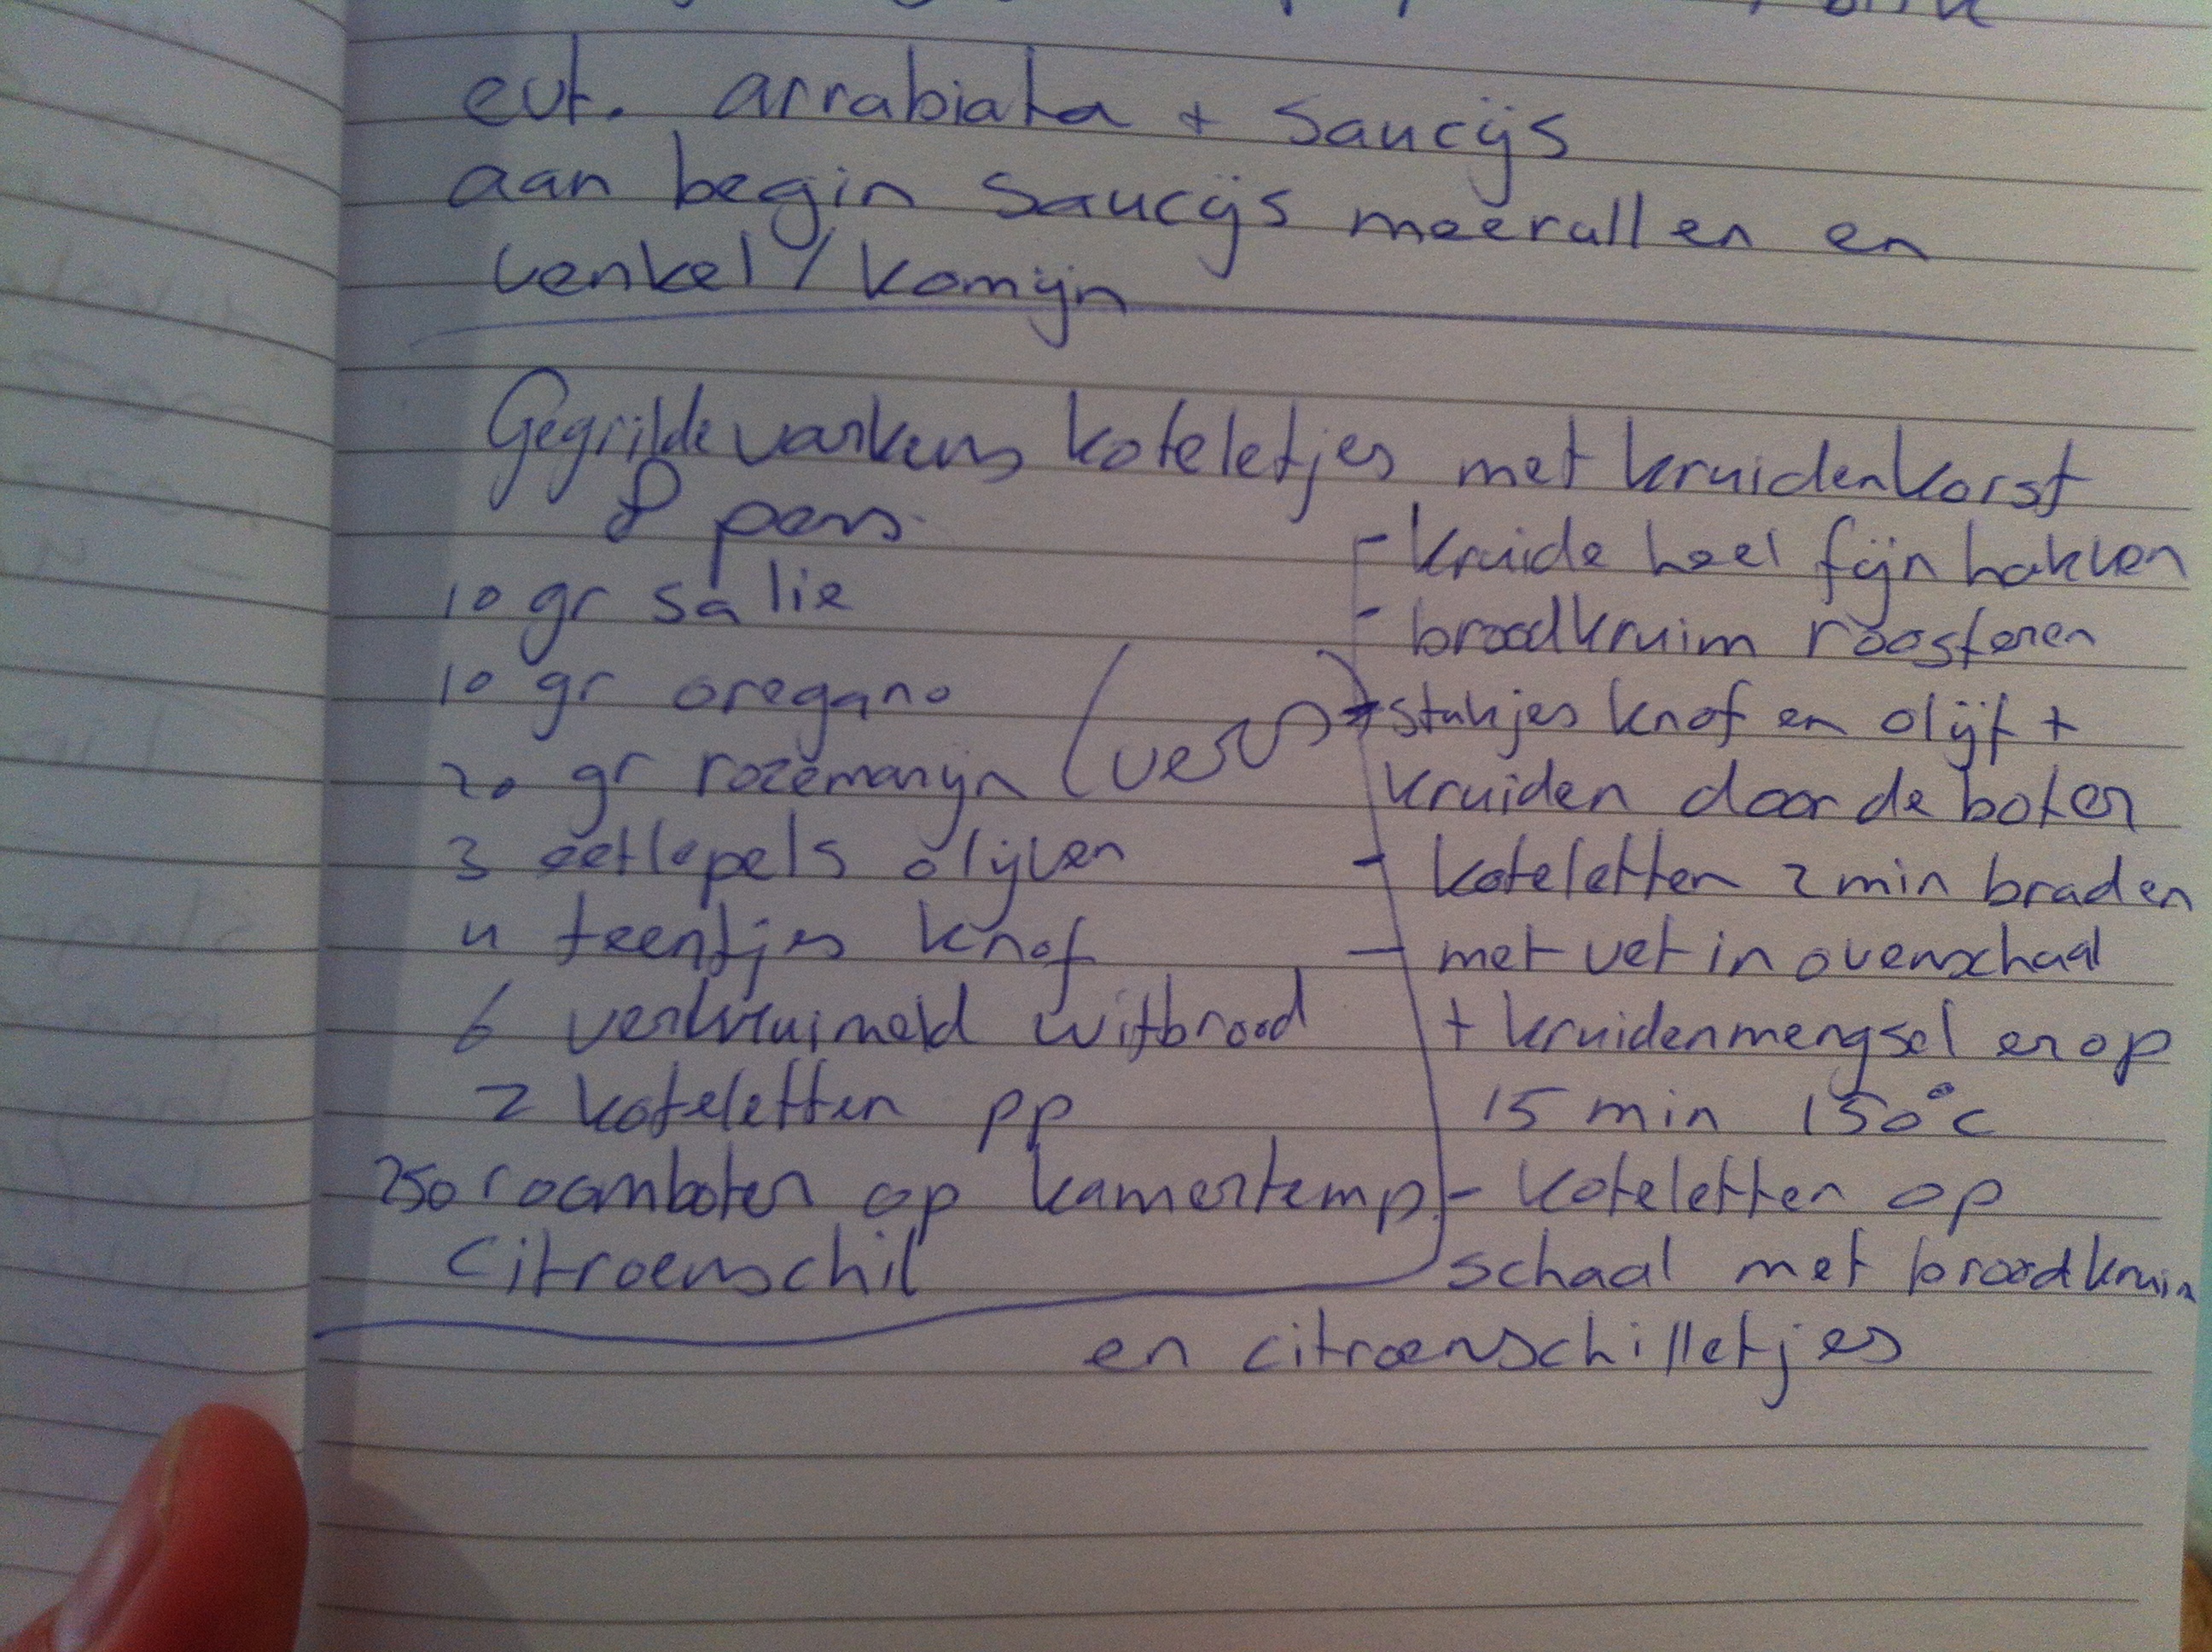 evt. arrabiata + saucijs
aan begin saucijs meerullen en
venkel / komijn
Gegrilde varkens koteletjes met kruidenkorst
8 pers.
10 gr salie
10 gr oregano
20 gr rozemarijn (vers)
3 eetlepels olijven
4 teentjes knof
6 verkruimeld witbrood
2 koteletten pp
250 roomboter op kamertemp.
Citroenschil
- kruide heel fijn hakken
- broodkruim roosteren
stukjes knof en olijf +
kruiden door de boter
- koteletten 2 min braden
- met vet in ovenschaal
+ kruidenmengsel erop
15 min 150°c
- koteletten op
schaal met broodkruim
en citroenschilletjes